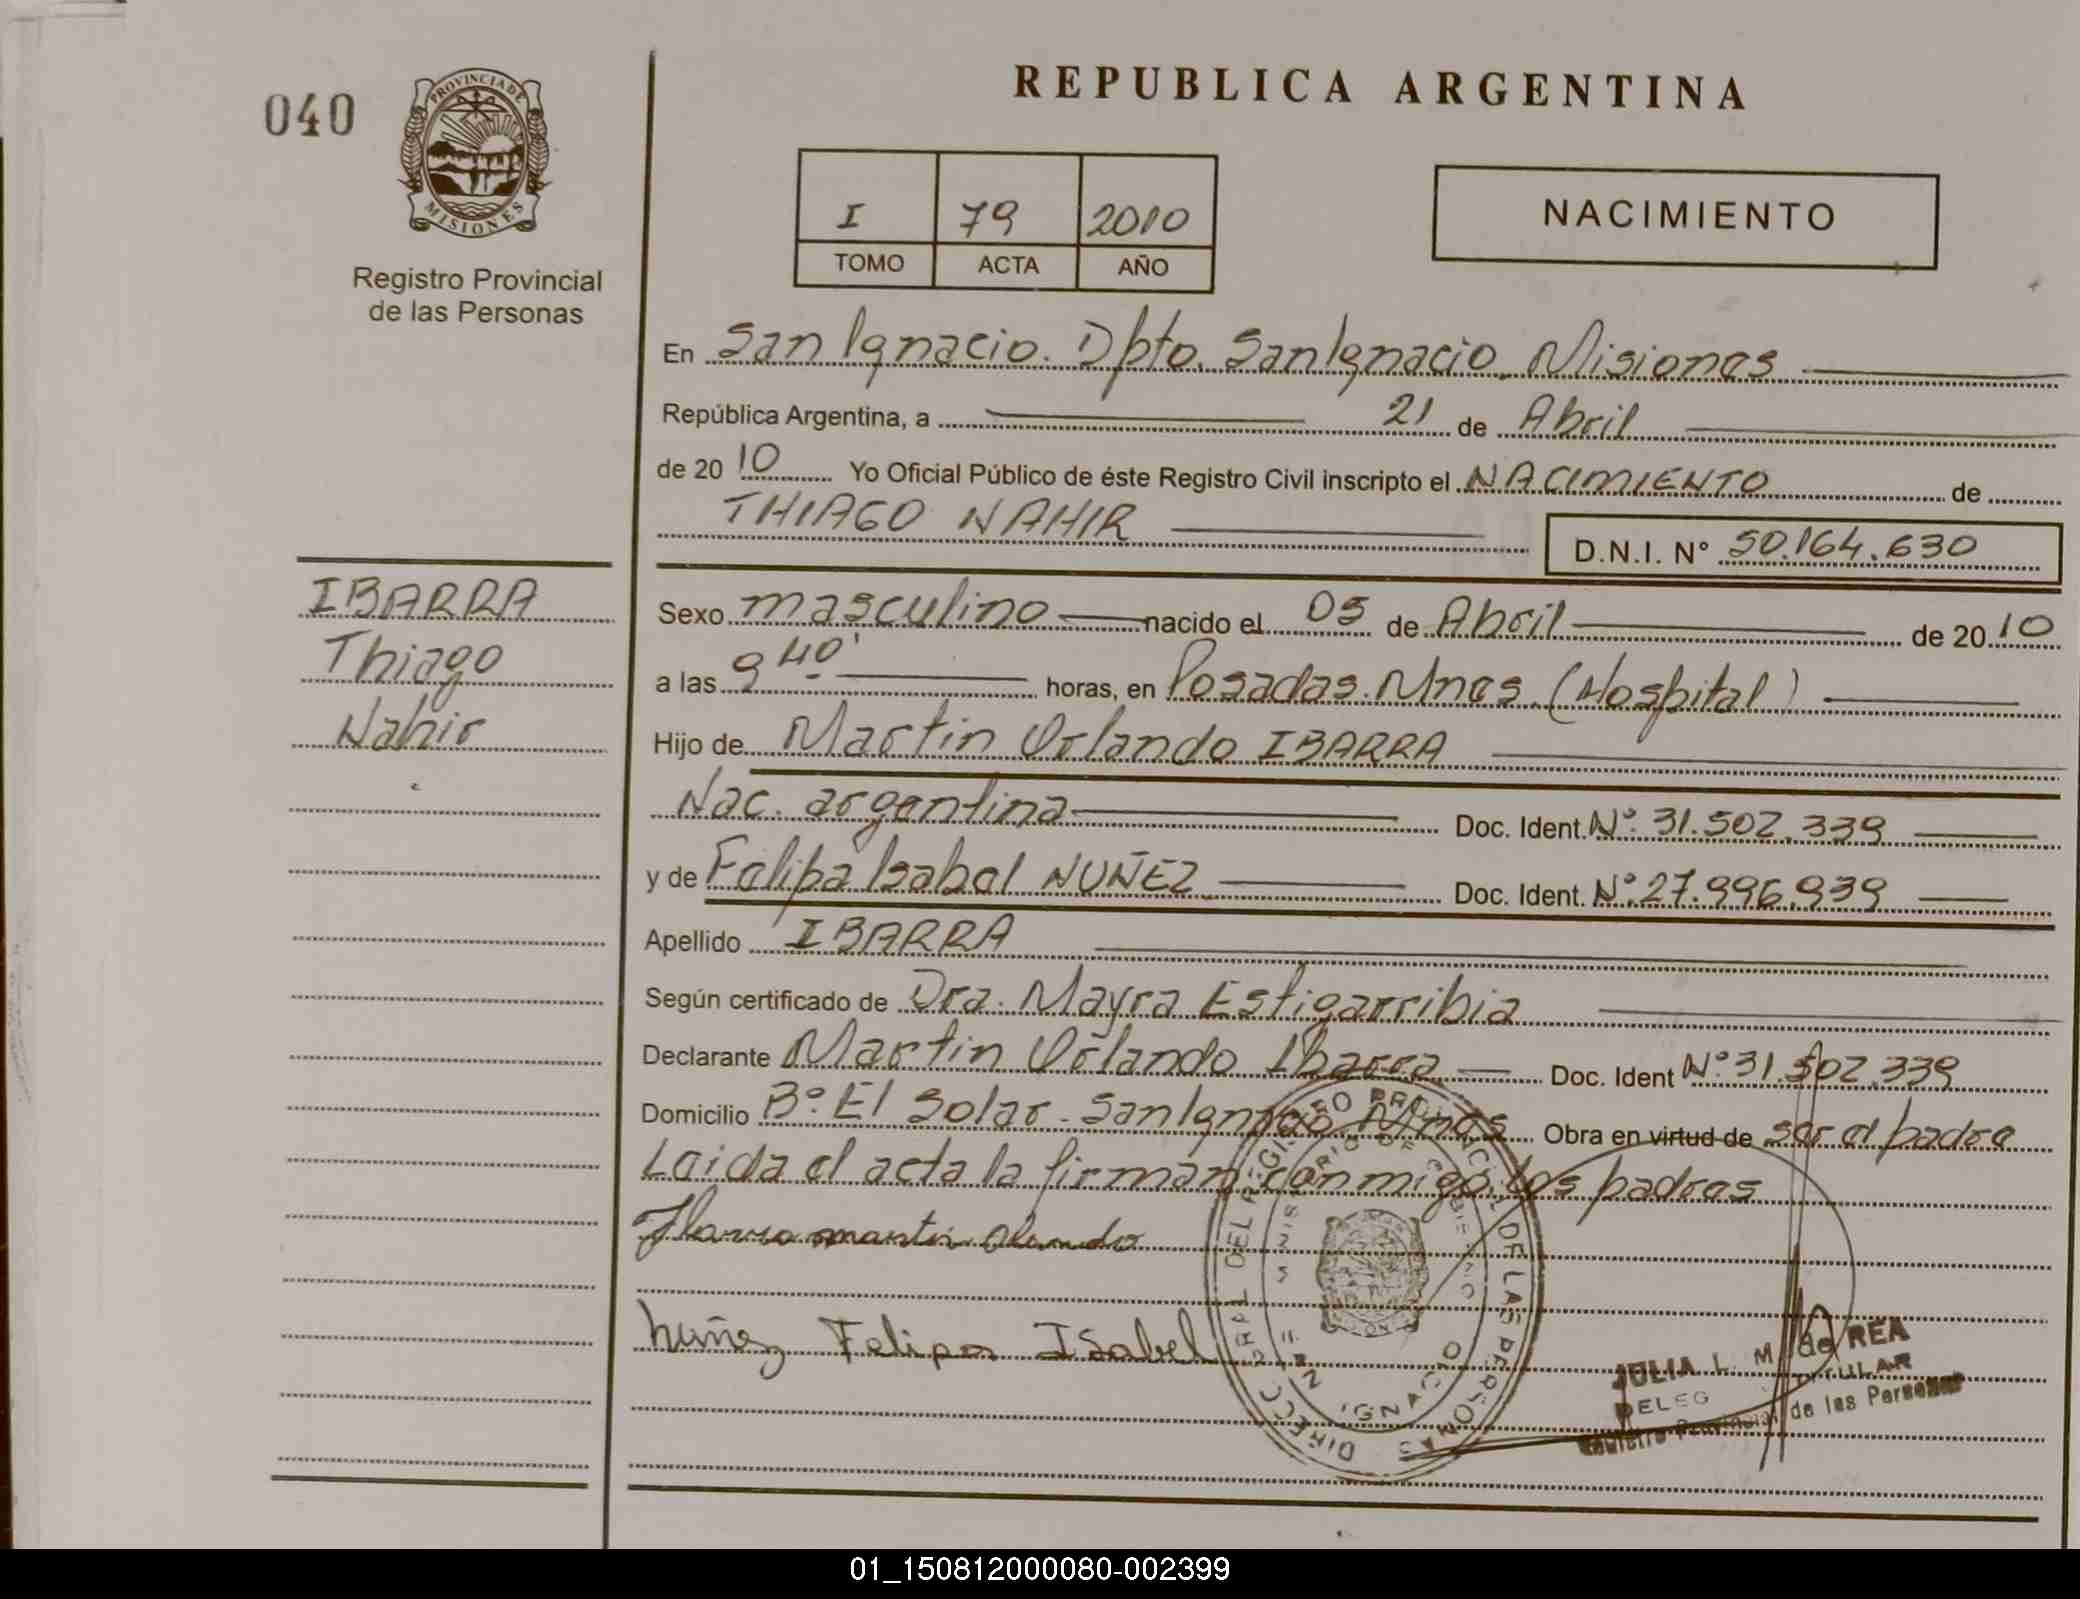 REPUBLICA ARGENTINA
040
PROVINCIA DE
MISIONES
Registro Provincial
de las Personas
I 79 2010
TOMO ACTA AÑO
NACIMIENTO
En San Ignacio. Dpto. San Ignacio. Misiones
República Argentina, a 21 de Abril
de 20 10 Yo Oficial Público de éste Registro Civil inscripto el NACIMIENTO de
THIAGO NAHIR D.N.I. Nº 50.164.630
IBARRA
Thiago
Nahir
Sexo masculino nacido el 05 de Abril de 20 10
a las 9 40' horas, en Posadas. Mnes. (Hospital)
Hijo de Martin Orlando IBARRA
Nac. argentina Doc. Ident. Nº. 31.502.339
y de Felipa Isabel NUÑEZ Doc. Ident. Nº. 27.996.939
Apellido IBARRA
Según certificado de Dra. Mayra Estigarribia
Declarante Martin Orlando Ibarra Doc. Ident Nº 31.502.339
Domicilio Bº. El Solar - San Ignacio Mnes Obra en virtud de ser el padre
Leida el acta la firman conmigo los padres
Ibarra martin Olando
Nuñez Felipa Isabel
DIRECC GRAL DEL REGISTRO PROVINCIAL DE LAS PERSONAS
IGNACIO
JULIA L. M. de REA
TITULAR
Registro Provincial de las Personas
01_150812000080-002399